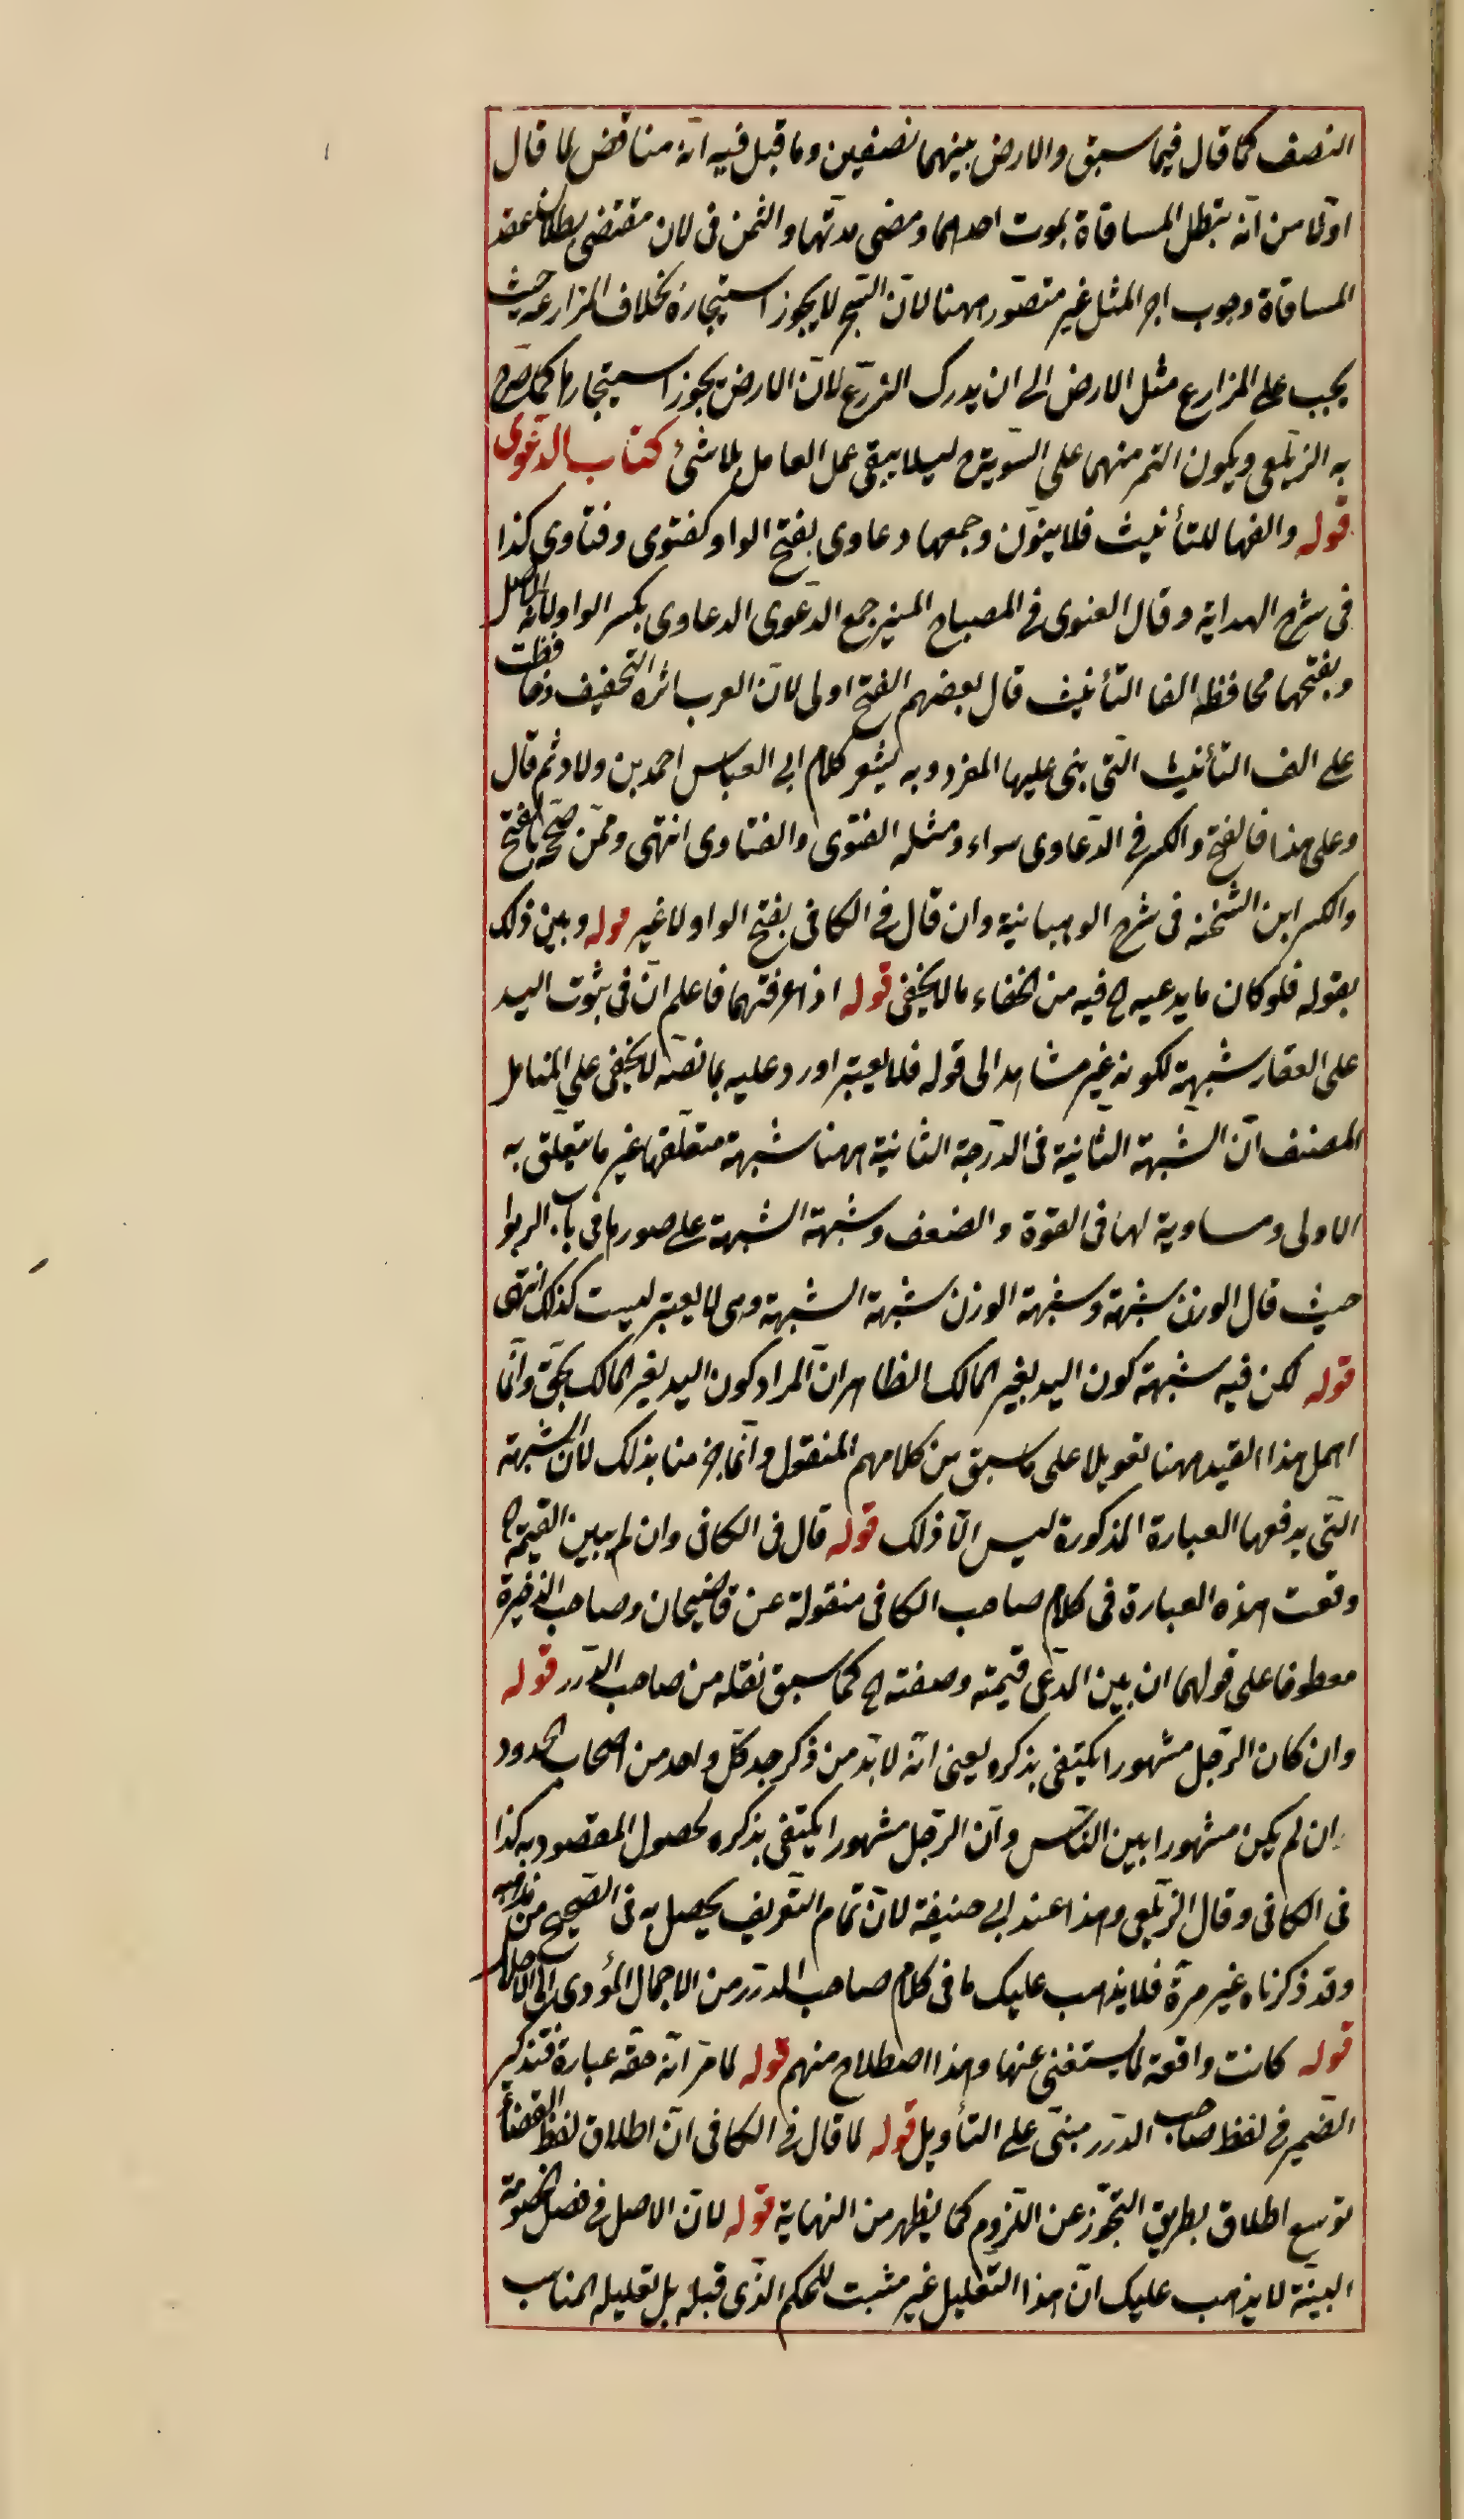 النصف كما قال فيما سبق والارض بينهما نصفين وما قيل فيه انه مناقض لما قال
اولا من انه تبطل المساقاة بموت احدهما ومضى مدتها والثمن فى لان مقتضى بطلان عقد
المساقاة وجوب اجر المثل غير متصور ههنا لان الشجر لا يجوز استيجاره بخلاف المزارعه حيث
يجب على المزارع مثل الارض الى ان يدرك الزرع لان الارض يجوز استيجارها كما صرح
به الزيلعى ويكون الثمر منهما على السوية ليلا يبقى عمل العامل بلا شئ كتاب الدعوى
قوله والفها للتأنيث فلا ينون وجمعها دعاوى بفتح الواو كفتوى وفتاوى كذا
فى شرح الهداية وقال الغنوى فى المصباح المنير جمع الدعوى الدعاوى بكسر الواو لانه الاصل
وبفتحها محافظة الفا التأنيث قال بعضهم الفتح اولى لان العرب اثره التخفيف وحافظت
على الف التأنيث التى بنى عليها المفرد وبه يشعر كلام ابى العباس احمد بن ولاد ثم قال
وعلى هذا فالفتح والكسر فى الدعاوى سواء ومثله الفتوى والفتاوى انتهى وممن صحح بالفتح
والكسر ابن الشحنه فى شرح الوهبانية وان قال فى الكافى بفتح الواو لا غير قوله وبين ذلك
بقوله فلو كان ما يدعيه الخ فيه من الخفاء ما لا يخفى قوله اذا عرفتهما فاعلم ان فى ثبوت اليد
على العقار شبهة لكونه غير مشاهد الى قوله فلا يعتبر اورد عليه بما نصه لا يخفى على المتامل
المصنف ان الشبهة الثانية فى الدرجة الثانية ههنا شبهة متعلقها غير ما يتعلق به
الاولى ومساوية لها فى القوة والضعف وشبهة الشبهة على صور ما فى باب الربوا
حيث قال الوزن شبهة وشبهة الوزن شبهة الشبهة وهى لا يعتبر ليست كذلك انتهى
قوله لكن فيه شبهة كون اليد لغير المالك الظاهر ان المراد كون اليد لغير المالك بحق وانما
اهمل هذا القيد ههنا تعويلا على ما سبق من كلامهم المنقول وانما جزمنا بذلك لان الشبهة
التى يدفعها العبارة المذكورة ليس الا ذلك قوله قال فى الكافى وان لم يبين القيمة الخ
وقعت هذه العبارة فى كلام صاحب الكافى منقولة عن قاضيخان وصاحب الذخيرة
معطوفا على قولهما ان بين المدعى قيمته وصفته الخ كما سبق نقله من صاحب الدرر قوله
وان كان الرجل مشهورا يكتفى بذكره يعنى انه لا بد من ذكر جد كل واحد من اصحاب الحدود
ان لم يكن مشهورا بين الناس وان الرجل مشهورا يكتفى بذكره لحصول المقصود به كذا
فى الكافى وقال الزيلعى وهذا عند ابى حنيفة لان تمام التعريف يحصل به فى الصحيح من مذهبه
وقد ذكرناه غير مرة فلا يذهب عليك ما فى كلام صاحب الدرر من الاجمال المؤدى الى الاخلال
قوله كانت واقعة لا يستغنى عنها وهذا اصطلاح منهم قوله لما مر انه حقه عبارة فتذكير
الضمير فى لفظ صاحب الدرر مبنى على التأويل قوله لما قال فى الكافى ان اطلاق لفظ القضاء
توسيع اطلاق بطريق التجوز عن اللزوم كما يظهر من النهاية قوله لان الاصل فى فصل الخصومة
البينة لا يذهب عليك ان هذا التعليل غير مثبت للحكم الذى قبله بل تعليله المناسب